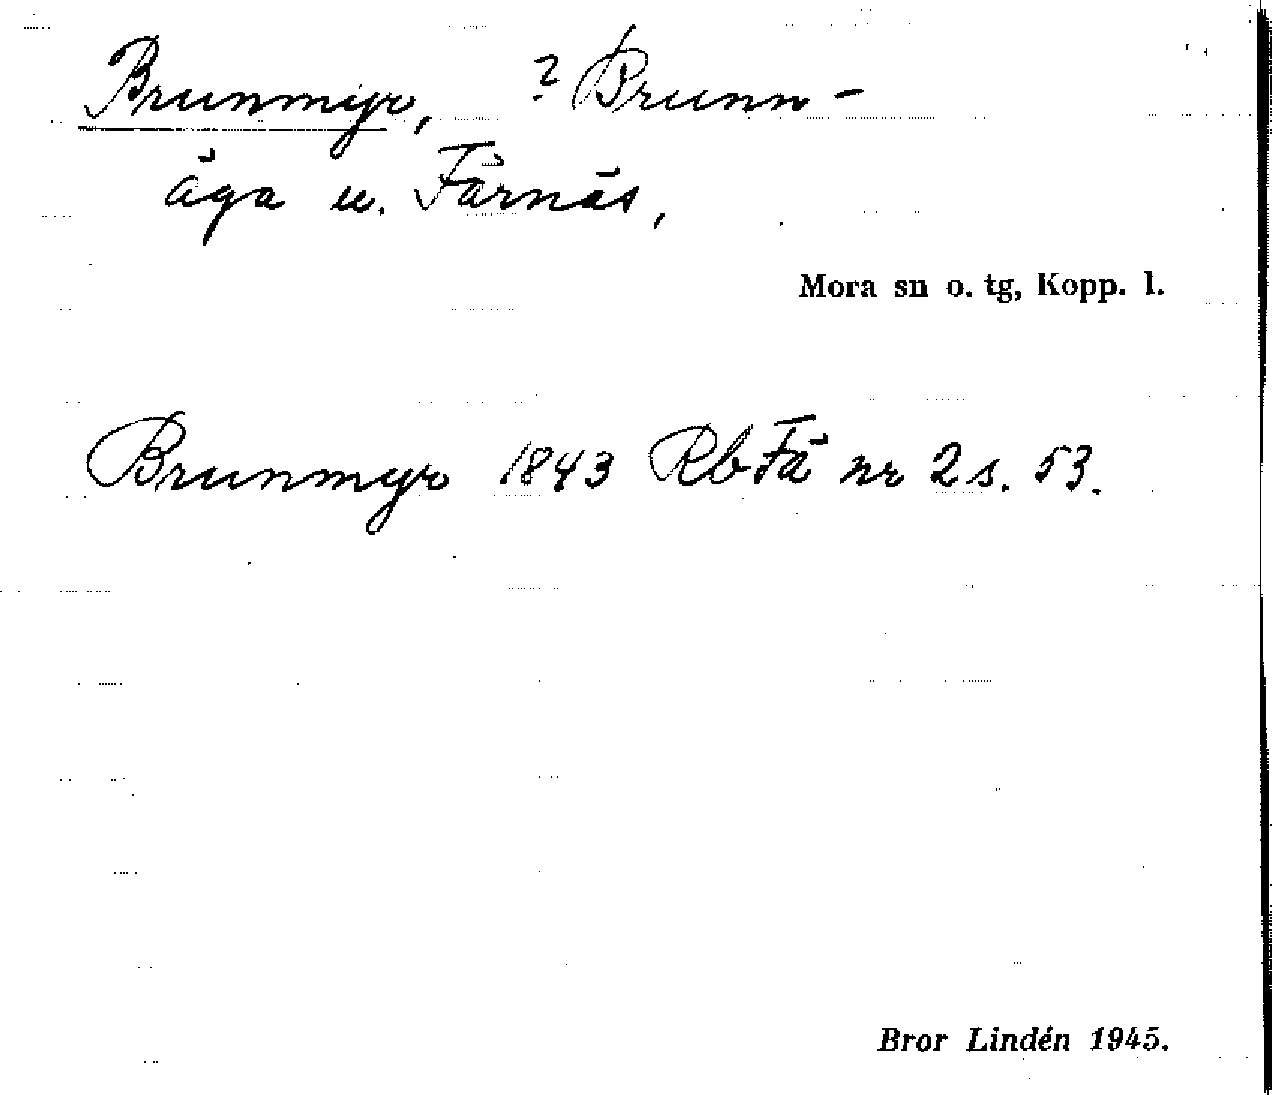 Brunmyr, ? Brunn-
äga u. Färnäs,
Mora sn o. tg, Kopp. l.
Brunmyr 1843 Rb Fä nr 2 s. 53.
Bror Lindén 1945.